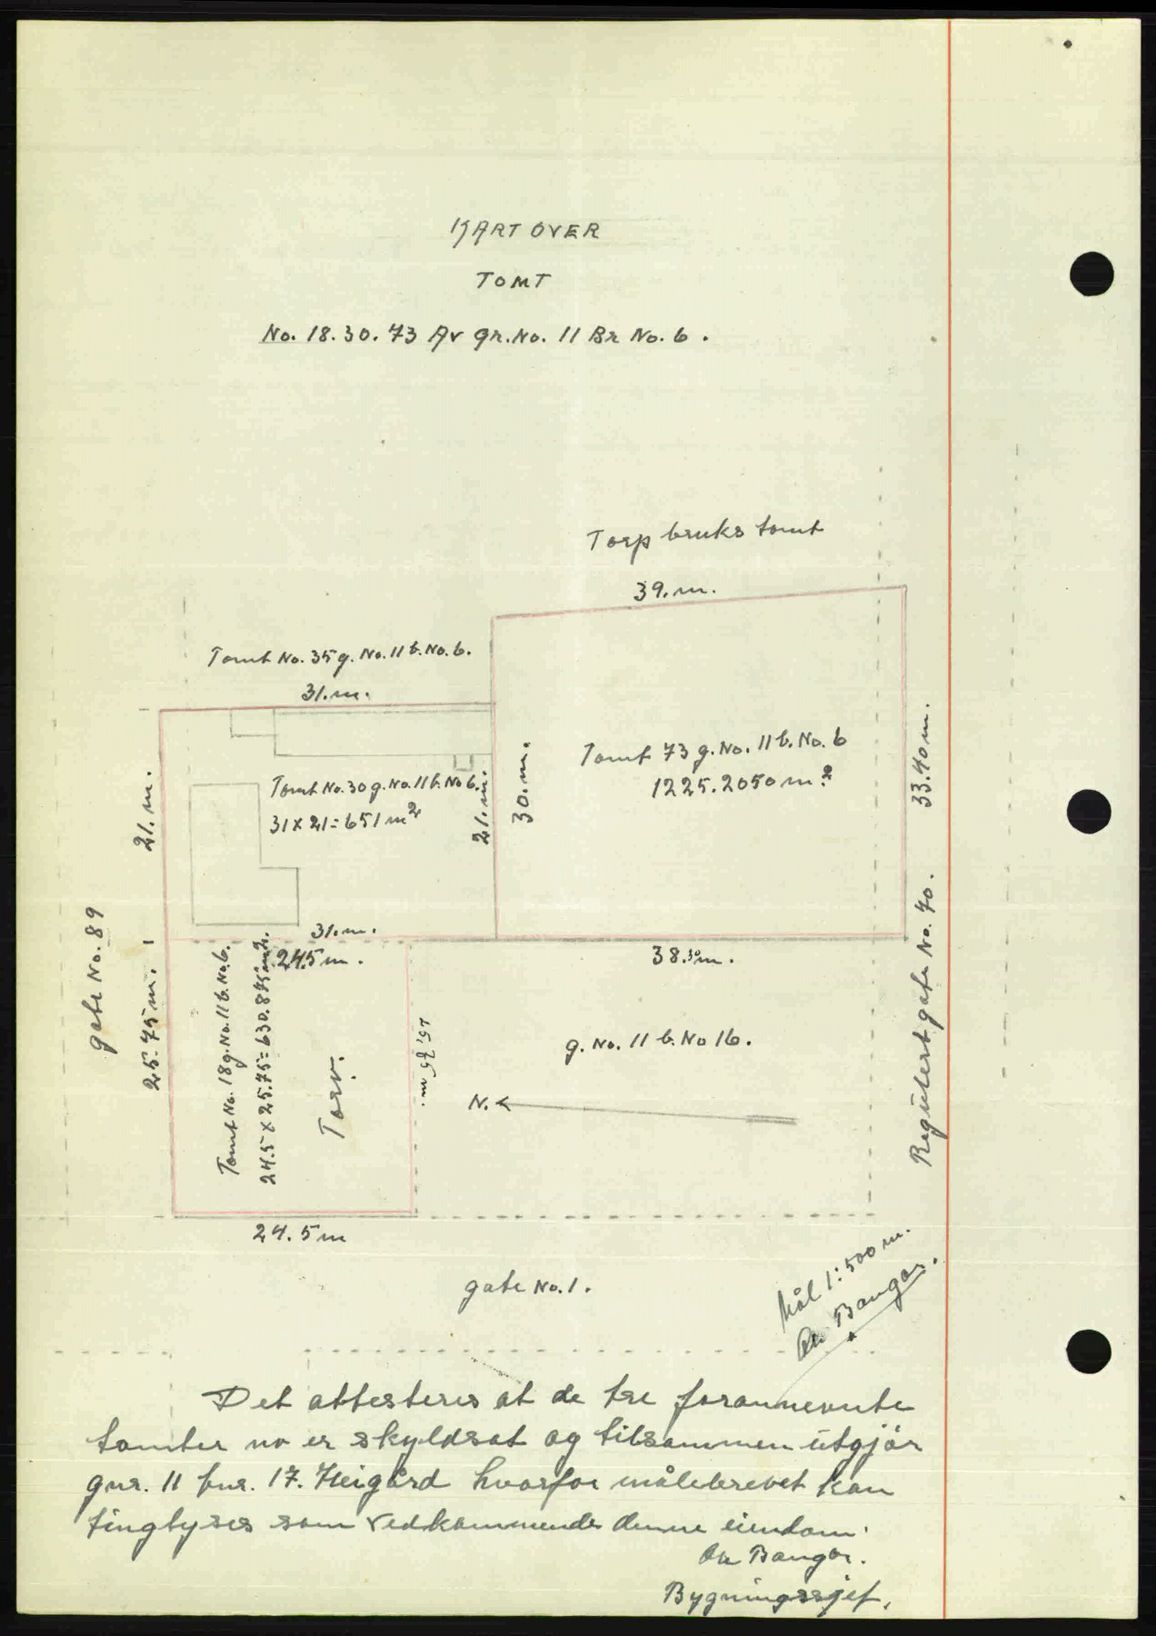 KART OVER
TOMT
No. 18. 30. 73 Av gr. No. 11 Br No. 6.
Torp bruks tomt
39. m.
Tomt No. 35 g. No. 11 b. No. 6.
31. m.
Tomt 73 g. No. 11 b. No. 6
1225.2050 m.²
33.40 m.
30. m.
Tomt No. 30 g. No. 11 b. No 6.
31 x 21 = 651 m²
21. m.
21. m.
31. m.
24.5 m.
38.30 m.
gate No. 89
25.75 m.
Tomt No. 18 g. No. 11 b. No. 6.
24.5 x 25.75 = 630.875 m2.
Torv.
25.75 m.
g. No. 11 b. No 16.
N.
Regulert gate No. 70.
24.5 m
gate No. 1.
Mål 1:500 m.
Bangor.
Det attesteres at de tre forannevnte
tomter nv er skyldsat og tilsammen utgjør
gnr. 11 bnr. 17. Heigård hvorfor målebrevet kan
tinglyses som vedkommende denne eiendom.
Bangor.
Bygningssjef.